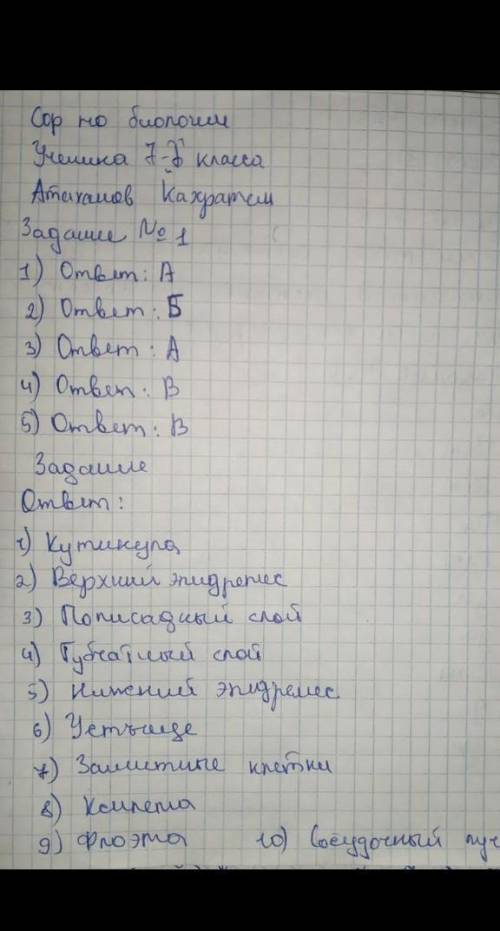 Сор по биологии
Ученика 7-Б класса
Атаханов Кахраман
Задание № 1
1) Ответ: А
2) Ответ: Б
3) Ответ: А
4) Ответ: В
5) Ответ: В
Задание
Ответ:
1) Кутикула
2) Верхний эпидремес
3) Пописадный слой
4) Губчатный слой
5) Нижений эпидремес
6) Устьице
7) Замитные клетки
8) Ксилема
9) Флоэма 10) Сосудочный пуч